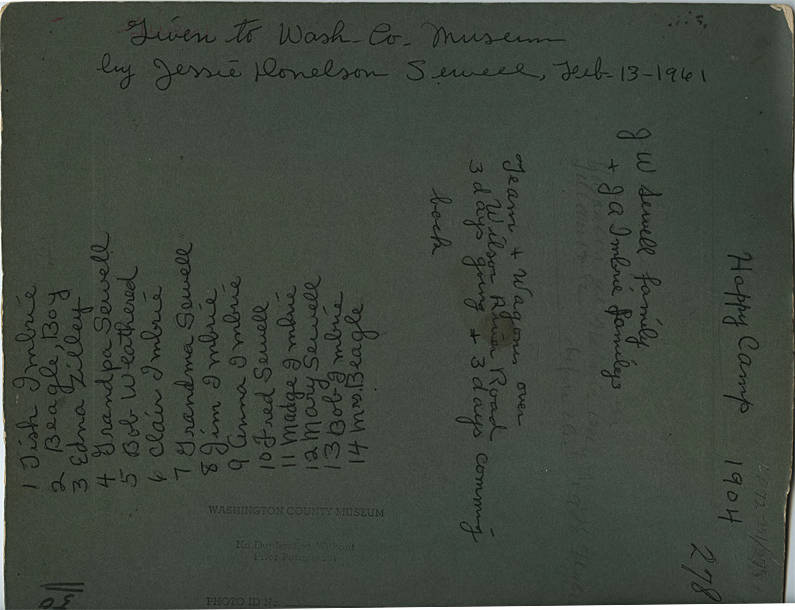 Given to Wash-Co. Museum
by Jessie Donelson Sewell, Feb-13-1961
Happy Camp 1904
278
J W Sewell family
+ J A Imbrie familys
Team + Wagons over
Wilson River Road
3 days going + 3 days coming
back
1 Tish Imbrie
2 Beagle, Boy
3 Edna Zilley
4 Grandpa Sewell
5 Bob Weathered
6 Clair Imbrie
7 Grandma Sewell
8 Jim Imbrie
9 Anna Imbrie
10 Fred Sewell
11 Madge Imbrie
12 Mary Sewell
13 Bob Imbrie
14 Mrs Beagle
WASHINGTON COUNTY MUSEUM
No Duplication Without
Prior Permission
PHOTO ID No.